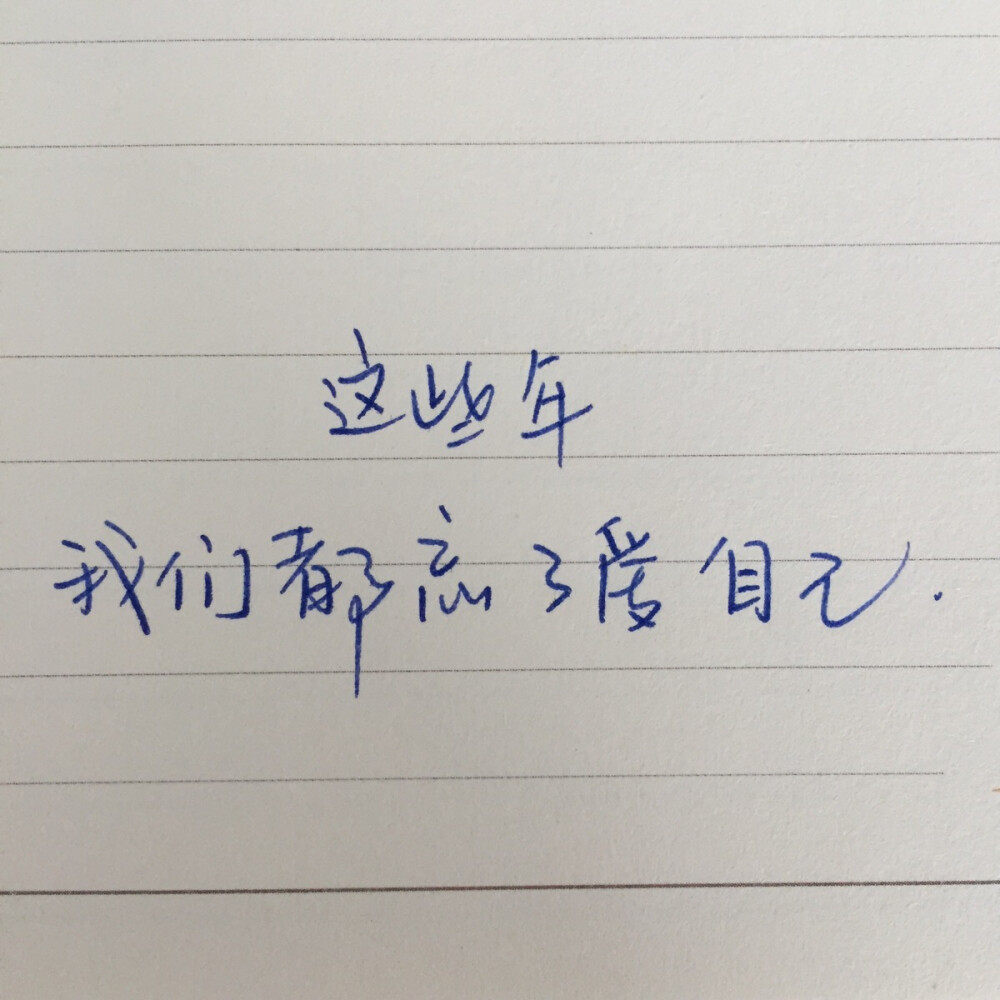 这些年
我们都忘了爱自己.